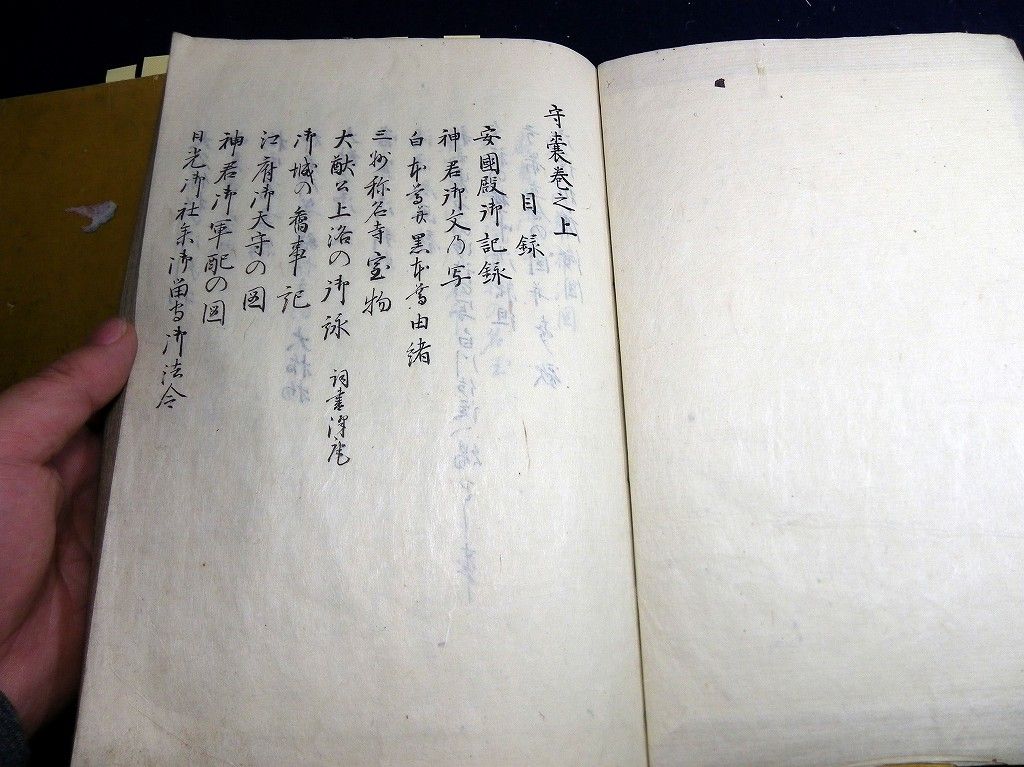 守嚢巻之上
目録
安國殿御記録
神君御文乃写
白本尊并黒本尊由緒
三州称名寺宝物
大猷公上洛の御詠 詞書深庵
御城の旧事記
江府御天守の図
神君御軍配の図
日光御社参御留守御法令